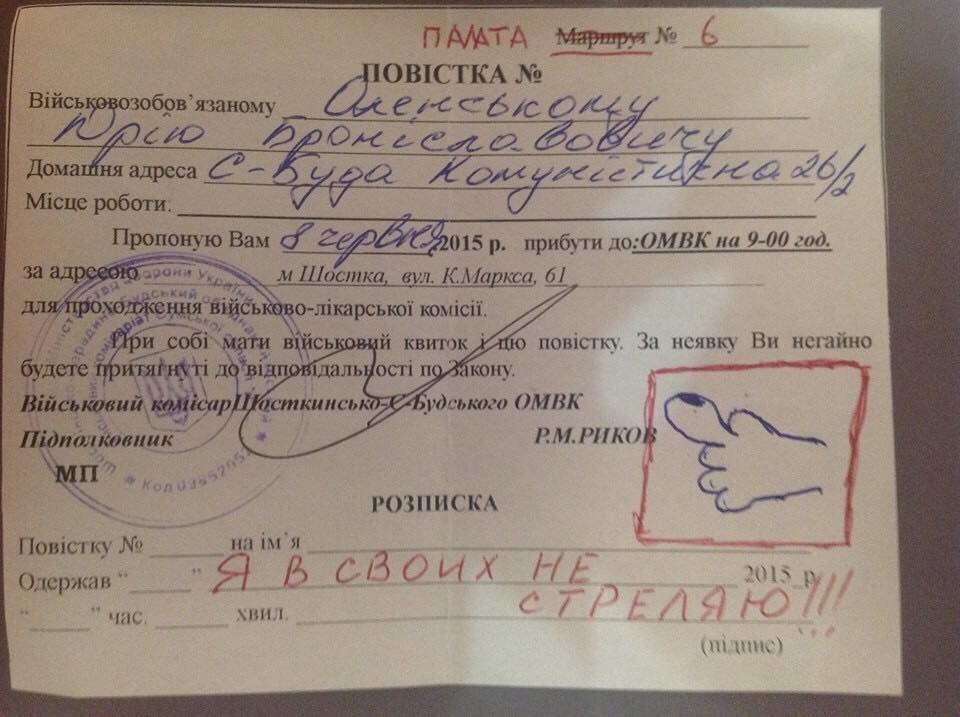 ПАЛАТА Маршрут № 6
ПОВІСТКА №
Військовозобов'язаному Оленському
Юрію Броніславовичу
Домашня адреса С-Буда Комуністична 26/2
Місце роботи:
Пропоную Вам 8 червня 2015 р. прибути до:ОМВК на 9-00 год.
за адресою м Шостка, вул. К.Маркса, 61
для проходження військово-лікарської комісії.
При собі мати військовий квиток і цю повістку. За неявку Ви негайно
будете притягнуті до відповідальності по Закону.
Військовий комісар Шосткинсько-С-Будського ОМВК
Підполковник Р.М.РИКОВ
МП
РОЗПИСКА
Повістку № на ім'я
Одержав “ ” Я В СВОИХ НЕ 2015 р.
СТРЕЛЯЮ!!!
“ ” час. хвил.
(підпис)